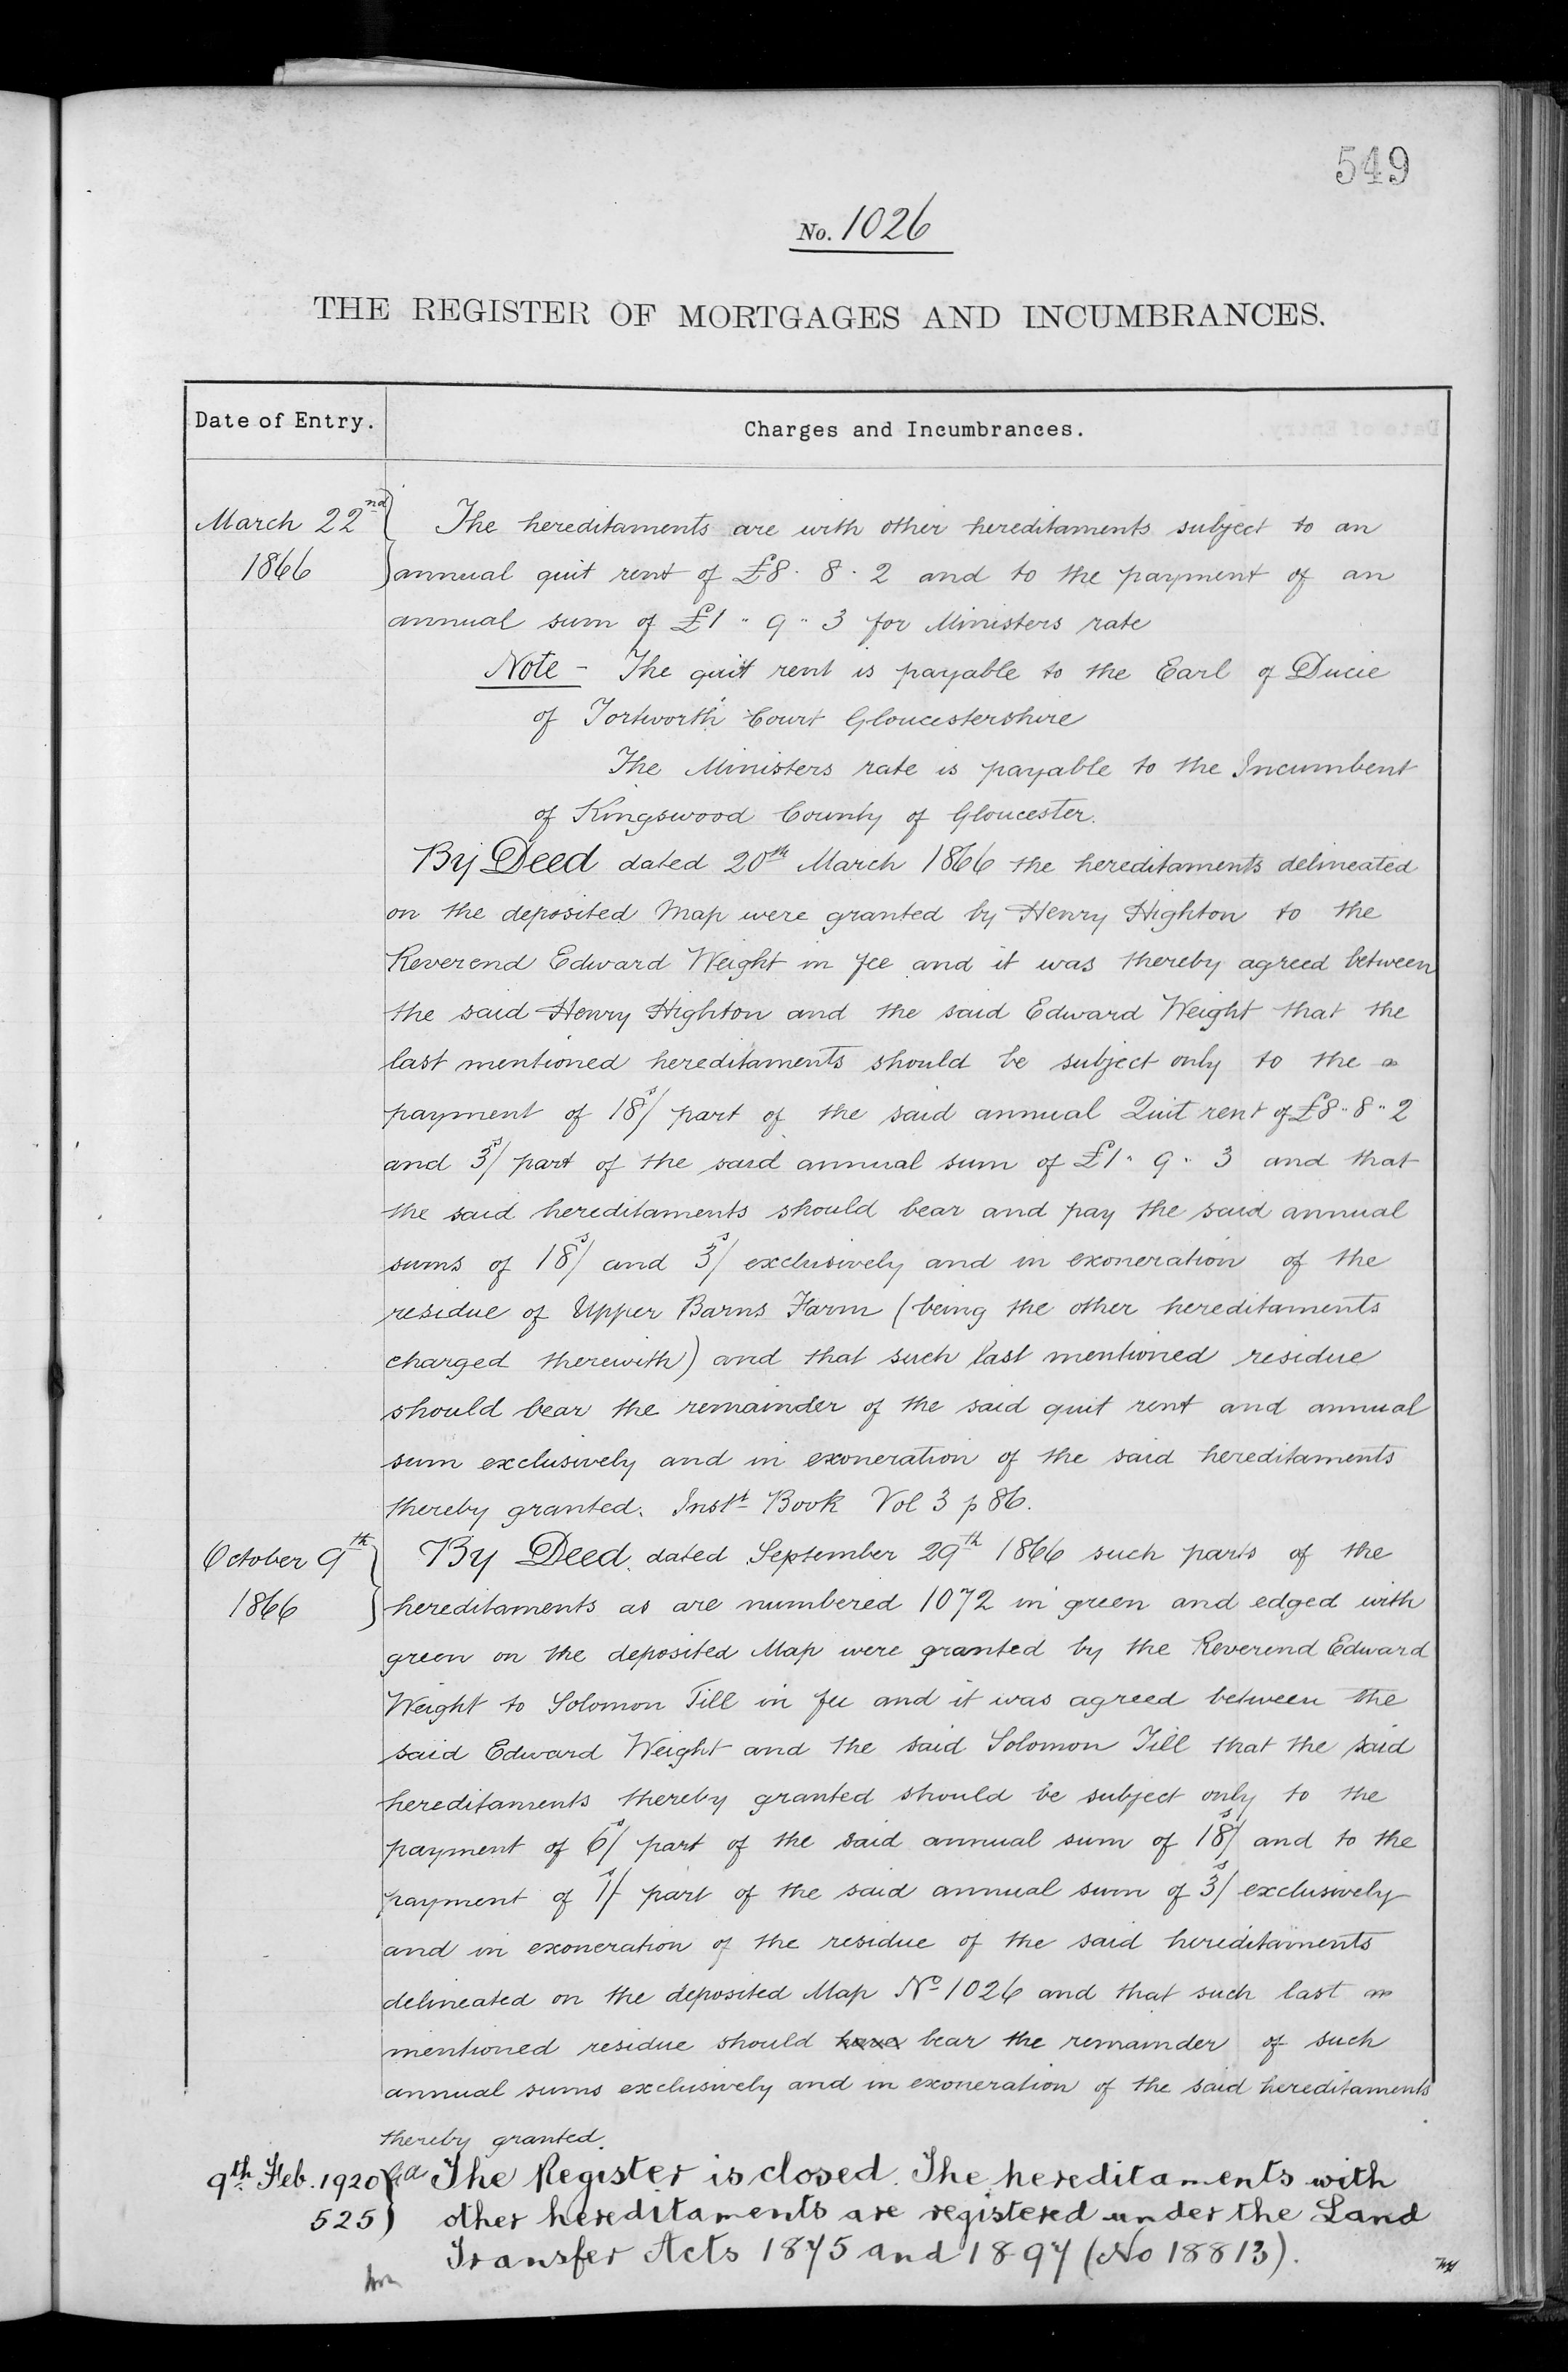 549
No. 1026
THE REGISTER OF MORTGAGES AND INCUMBRANCES.
Date of Entry.
Charges and Incumbrances.
March 22nd 1866
The hereditaments are with other hereditaments subject to an
annual quit rent of £8. 8. 2 and to the payment of an
annual sum of £1 " 9 " 3 for Ministers rate
Note - The quit rent is payable to the Earl of Ducie
of Tortworth Court Gloucestershire
The Ministers rate is payable to the Incumbent
of Kingswood County of Gloucester.
By Deed dated 20th March 1866 the hereditaments delineated
on the deposited Map were granted by Henry Highton to the
Reverend Edward Weight in fee and it was thereby agreed between
the said Henry Highton and the said Edward Weight that the
last mentioned hereditaments should be subject only to the
payment of 18s/ part of the said annual Quit rent of £8 " 8 " 2
and 3s/ part of the said annual sum of £1 " 9 " 3 and that
the said hereditaments should bear and pay the said annual
sums of 18s/ and 3s/ exclusively and in exoneration of the
residue of Upper Barns Farm (being the other hereditaments
charged therewith) and that such last mentioned residue
should bear the remainder of the said quit rent and annual
sum exclusively and in exoneration of the said hereditaments
thereby granted. Instt Book Vol 3 p 86.
October 9th 1866
By Deed dated September 29th 1866 such parts of the
hereditaments as are numbered 1072 in green and edged with
green on the deposited Map were granted by the Reverend Edward
Weight to Solomon Till in fee and it was agreed between the
said Edward Weight and the said Solomon Till that the said
hereditaments thereby granted should be subject only to the
payment of 6s/ part of the said annual sum of 18s/ and to the
payment of 1s/ part of the said annual sum of 3s/ exclusively
and in exoneration of the residue of the said hereditaments
delineated on the deposited Map No 1026 and that such last
mentioned residue should have bear the remainder of such
annual sums exclusively and in exoneration of the said hereditaments
thereby granted.
9th Feb. 1920
525
The Register is closed. The hereditaments with
other hereditaments are registered under the Land
Transfer Acts 1875 and 1897 (No 18813).